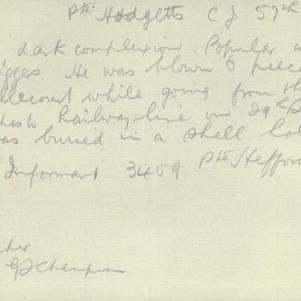 Pte Hodgetts C J 57th
dark complexion. Popular
. He was blown to pieces
while going from th
Railway line on 29th
was buried in a shell hol
Informant 3409 Pte Hefford
G Champion